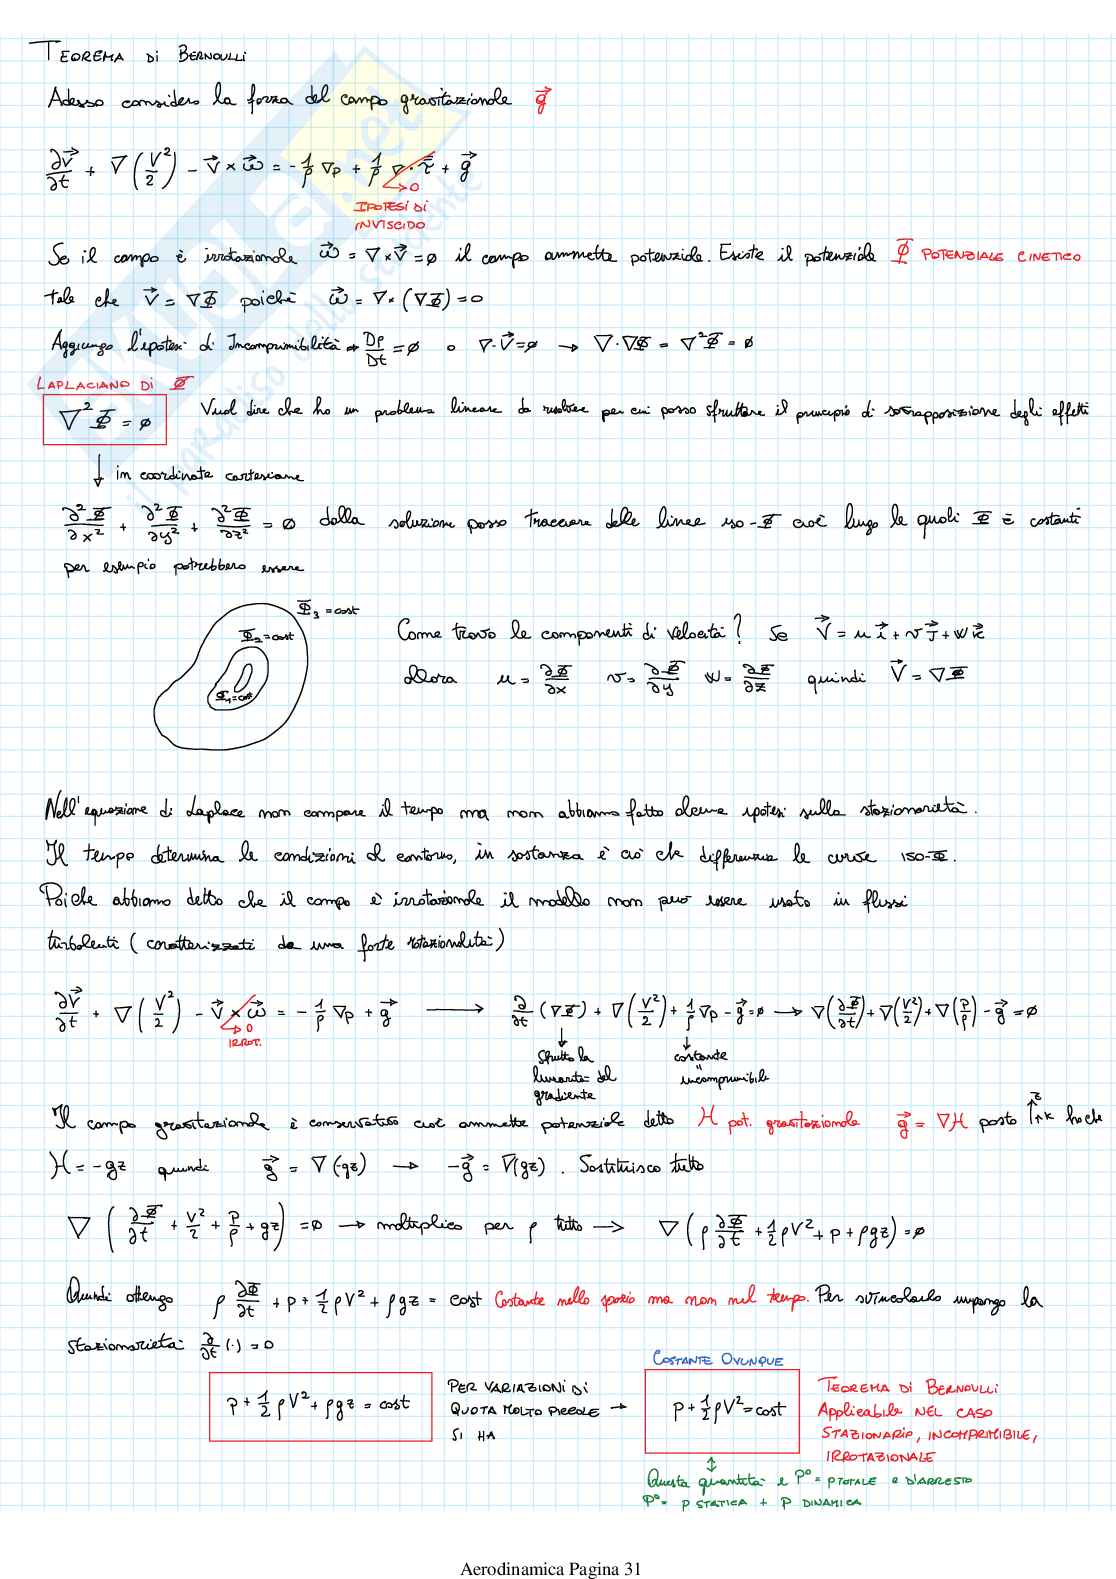 TEOREMA DI BERNOULLI
Adesso considero la forza del campo gravitazionale g⃗
∂V⃗/∂t + ∇(V²/2) - V⃗ × ω⃗ = -1/ρ ∇p + 1/ρ ∇·τ̿ + g⃗
→ 0
IPOTESI DI
INVISCIDO
Se il campo è irrotazionale ω⃗ = ∇×V⃗ = ∅ il campo ammette potenziale. Esiste il potenziale Φ POTENZIALE CINETICO
tale che V⃗ = ∇Φ poiché ω⃗ = ∇×(∇Φ) = 0
Aggiungo l'ipotesi di Incomprimibilità → Dρ/Dt = ∅ o ∇·V⃗ = ∅ → ∇·∇Φ = ∇²Φ = ∅
LAPLACIANO DI Φ
∇²Φ = ∅ Vuol dire che ho un problema lineare da risolvere per cui posso sfruttare il principio di sovrapposizione degli effetti
↓ in coordinate cartesiane
∂²Φ/∂x² + ∂²Φ/∂y² + ∂²Φ/∂z² = ∅ dalla soluzione posso tracciare delle linee iso-Φ cioè lungo le quali Φ è costanti
per esempio potrebbero essere
Φ₃ = cost
Φ₂ = cost
Φ₁ = cost
Come trovo le componenti di velocità? Se V⃗ = u i⃗ + v j⃗ + w k⃗
allora u = ∂Φ/∂x v = ∂Φ/∂y w = ∂Φ/∂z quindi V⃗ = ∇Φ
Nell'equazione di Laplace non compare il tempo ma non abbiamo fatto alcuna ipotesi sulla stazionarietà.
Il tempo determina le condizioni al contorno, in sostanza è ciò che differenzia le curve ISO-Φ.
Poiché abbiamo detto che il campo è irrotazionale il modello non può essere usato in flussi
turbolenti (caratterizzati da una forte rotazionalità)
∂V⃗/∂t + ∇(V²/2) - V⃗ × ω⃗ = -1/ρ ∇p + g⃗ → ∂/∂t (∇Φ) + ∇(V²/2) + 1/ρ ∇p - g⃗ = ∅ → ∇(∂Φ/∂t) + ∇(V²/2) + ∇(p/ρ) - g⃗ = ∅
→ 0
IRROT.
↓ Sfrutto la
linearità del
gradiente
↓ costante
"
incomprimibile
Il campo gravitazionale è conservativo cioè ammette potenziale detto H pot. gravitazionale g⃗ = ∇H posto ↑z ↑k ho che
H = -gz quindi g⃗ = ∇(-gz) → -g⃗ = ∇(gz). Sostituisco tutto
∇(∂Φ/∂t + V²/2 + p/ρ + gz) = ∅ → moltiplico per ρ tutto → ∇(ρ ∂Φ/∂t + 1/2 ρV² + p + ρgz) = ∅
Quindi ottengo ρ ∂Φ/∂t + p + 1/2 ρV² + ρgz = cost Costante nello spazio ma non nel tempo. Per svincolarlo impongo la
stazionarietà ∂/∂t (·) = 0
p + 1/2 ρV² + ρgz = cost
PER VARIAZIONI DI
QUOTA MOLTO PICCOLE →
SI HA
COSTANTE OVUNQUE
p + 1/2 ρV² = cost
TEOREMA DI BERNOULLI
Applicabile NEL CASO
STAZIONARIO, INCOMPRIMIBILE,
IRROTAZIONALE
↕
Questa quantità è P° = P TOTALE o D'ARRESTO
P° = P STATICA + P DINAMICA
Aerodinamica Pagina 31